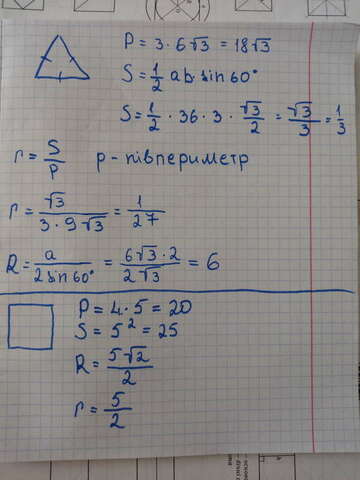 P = 3 · 6√3 = 18√3
S = 1/2 ab · sin 60°
S = 1/2 · 36 · 3 · √3/2 = √3/3 = 1/3
r = S/p p - півпериметр
r = √3/(3 · 9√3) = 1/27
R = a/(2 sin 60°) = (6√3 · 2)/(2√3) = 6
P = 4 · 5 = 20
S = 5² = 25
R = 5√2/2
r = 5/2